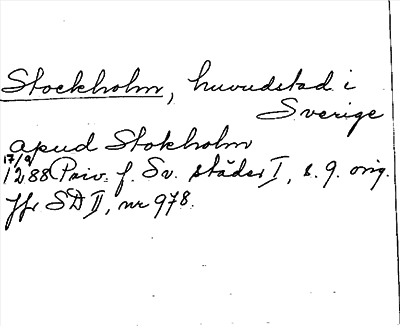 Stockholm, huvudstad i
Sverige
apud Stokholm
17/9
1288 Priv. f. Sv. städer I, s. 9. orig.
Jfr SD II, nr 978.